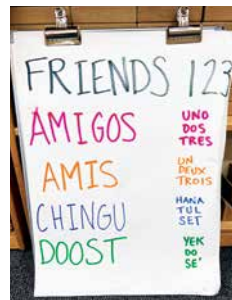 FRIENDS 123
AMIGOS
UNO
DOS
TRES
AMIS
UN
DEUX
TROIS
CHINGU
HANA
TUL
SET
DOOST
YEK
DO
SE'